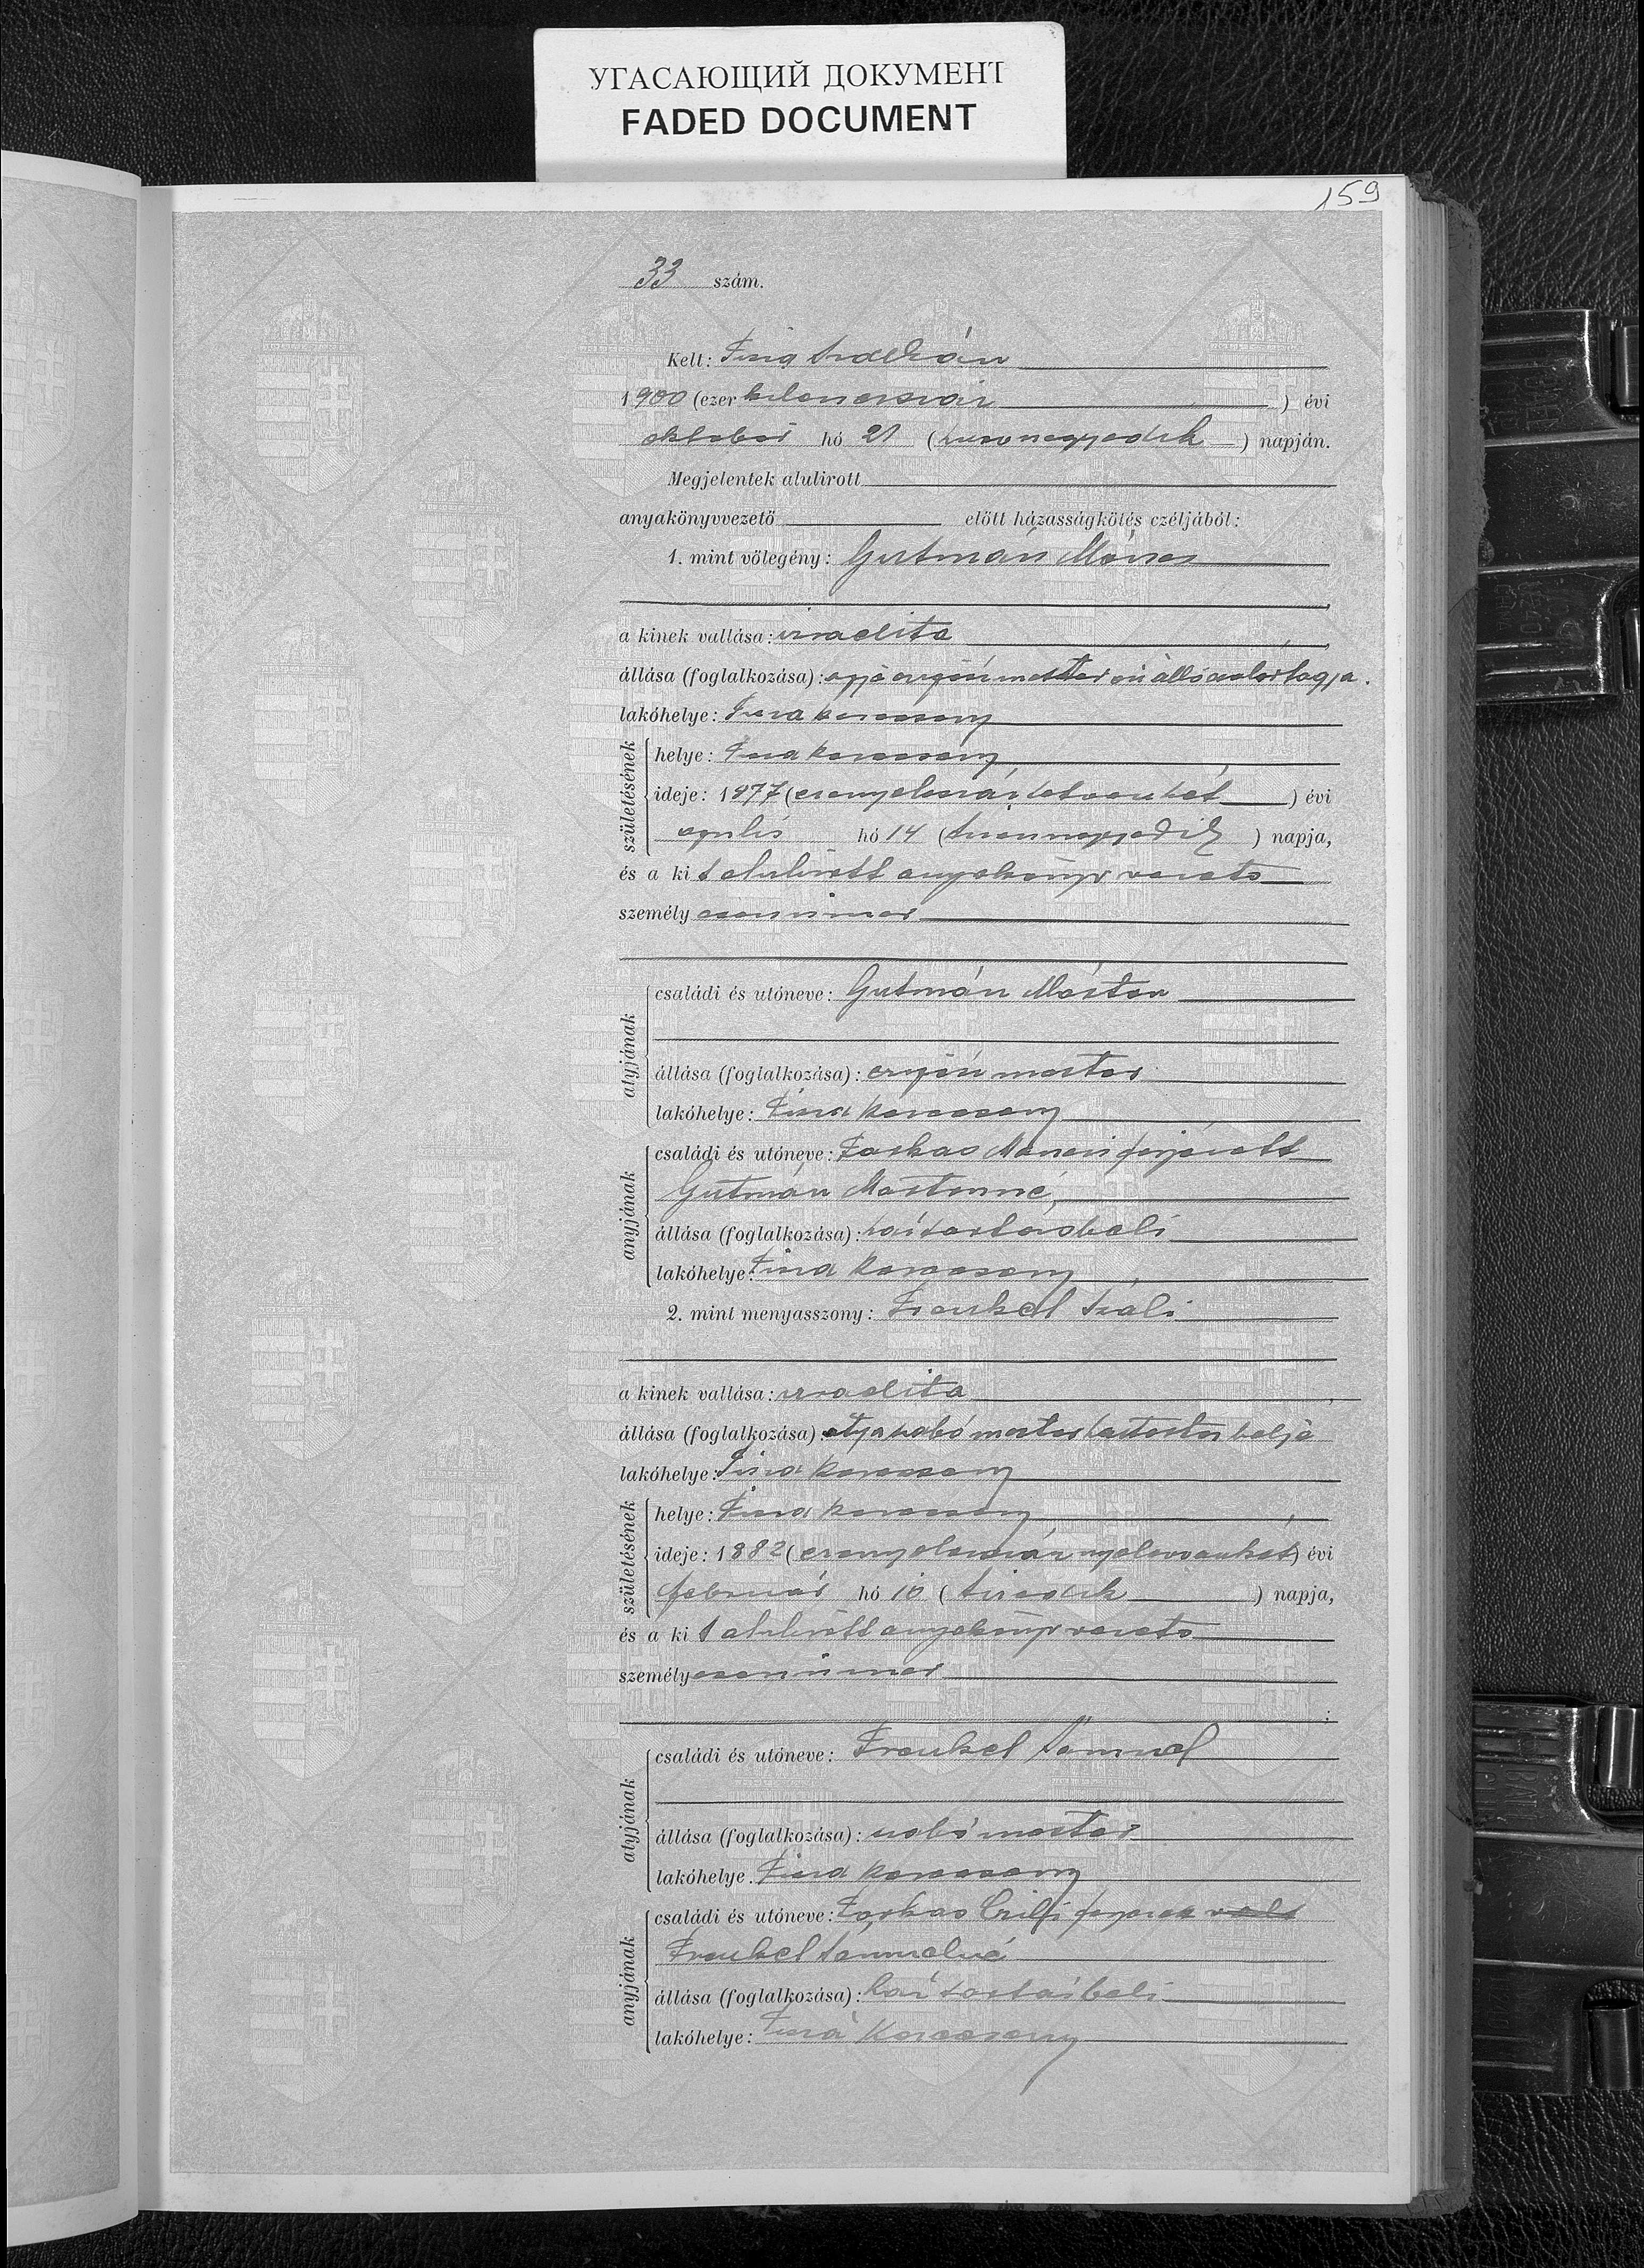 УГАСАЮЩИЙ ДОКУМЕНТ
FADED DOCUMENT
159
33 szám.
Kelt:
1900 (ezer kilenczszáz) évi
október hó 21 (husonnegyedik) napján.
Megjelentek alulirott
anyakönyvvezető előtt házasságkötés czéljából:
1. mint vőlegény: Gutmán Móricz
a kinek vallása: izraelita
állása (foglalkozása):
lakóhelye: Tisza Karacsony
születésének
helye: Tisza Karacsony
ideje: 1877 (ezernyolczszáz hetvenhét) évi
április hó 14 (tizennegyedik) napja,
és a ki s alulirott anyakönyvvezető
személy
atyjának
családi és utóneve: Gutmán Márton
állása (foglalkozása): mester
lakóhelye: Tisza Karacsony
anyjának
családi és utóneve: Farkas
Gutmán Mártonné,
állása (foglalkozása): háztartásbeli
lakóhelye: Tisza Karacsony
2. mint menyasszony: Frenkel Szali
a kinek vallása: izraelita
állása (foglalkozása): atya szabó mester háztartásbelije
lakóhelye: Tisza Karacsony
születésének
helye: Tisza Karacsony
ideje: 1882 (ezernyolczszáz nyolczvankét) évi
február hó 10 (tizedik) napja,
és a ki s alulirott anyakönyvvezető
személy
atyjának
családi és utóneve: Frenkel Sámuel
állása (foglalkozása): szabó mester
lakóhelye. Tisza Karacsony
anyjának
családi és utóneve: Farkas Czili
Frenkel Sámuelné
állása (foglalkozása): háztartásbeli
lakóhelye: Tisza Karacsony